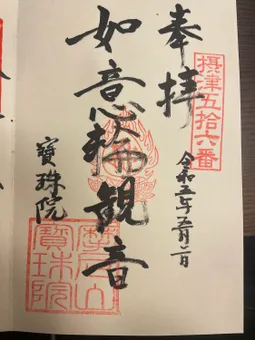 摂津五拾六番
奉拝
令和五年五月二日
如意輪観音
寶珠院
摩尼山
寶珠院